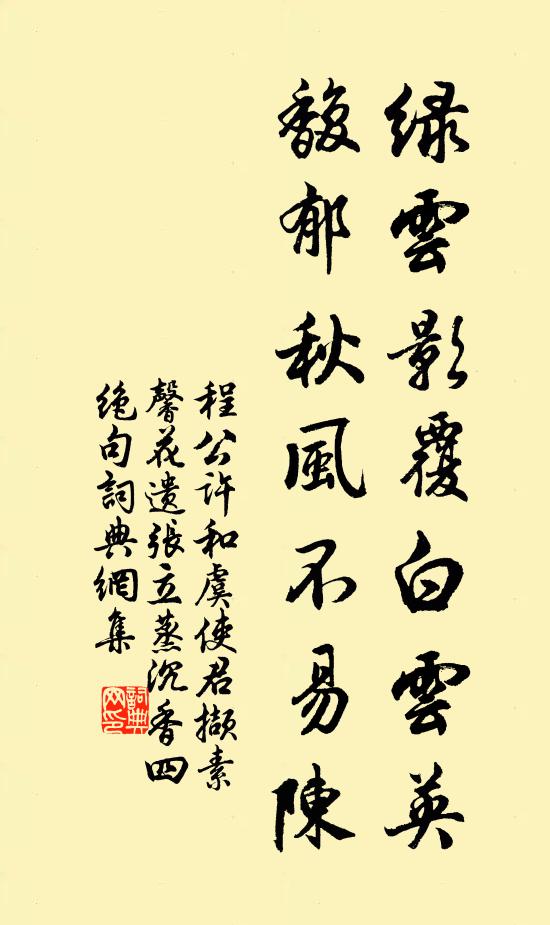 綠雲影覆白雲英
馥郁秋風不易陳
程公許和虞使君擷素
馨花遺張立蒸沉香四
絶句詞典網集
詞典
网印